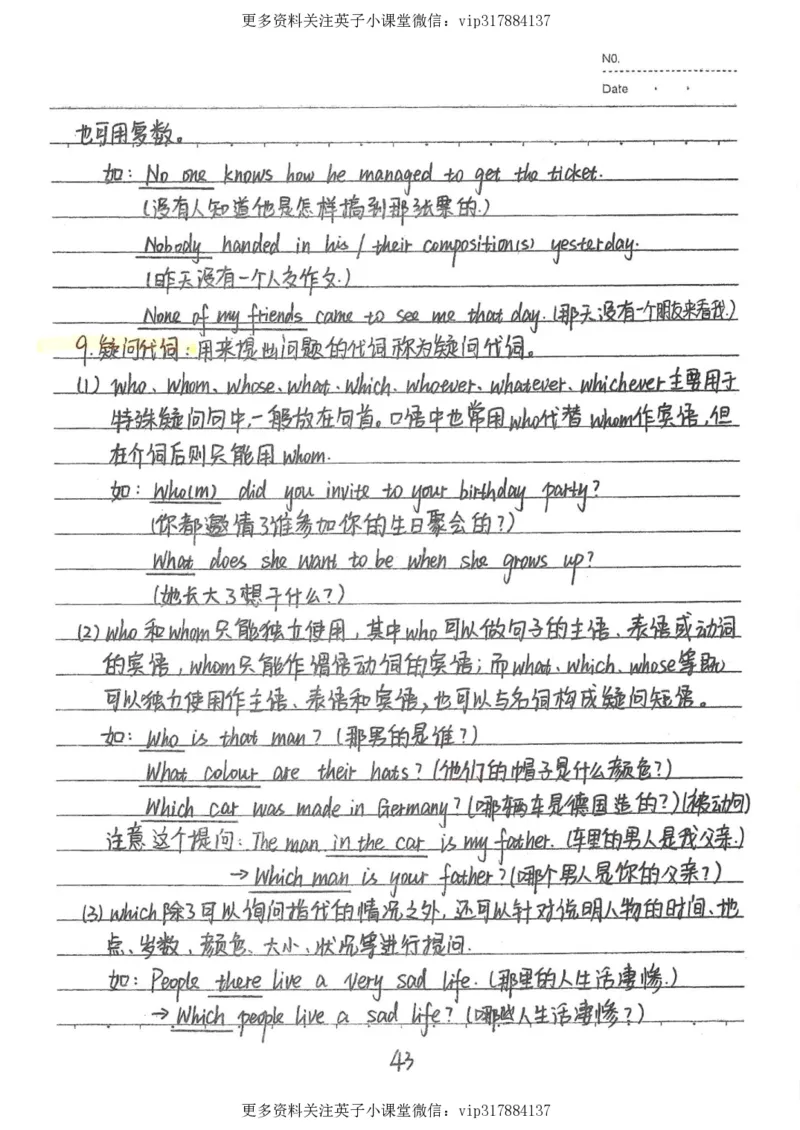 更多资料关注英子小课堂微信：vip317884137
NO.
Date
也可用复数。
如：No one knows how he managed to get the ticket.
(没有人知道他是怎样搞到那张票的.)
Nobody handed in his / their composition(s) yesterday.
(昨天没有一个人交作文.)
None of my friends came to see me that day. (那天没有一个朋友来看我.)
9.疑问代词：用来提出问题的代词称为疑问代词。
(1) who、whom、whose、what、which、whoever、whatever、whichever主要用于
特殊疑问句中,一般放在句首。口语中也常用who代替whom作宾语,但
在介词后则只能用whom.
如：Who(m) did you invite to your birthday party?
(你都邀请了谁参加你的生日聚会的?)
What does she want to be when she grows up?
(她长大了想干什么?)
(2) who和whom只能独立使用，其中who可以做句子的主语、表语或动词
的宾语，whom只能作谓语动词的宾语；而what、which、whose等既
可以独立使用作主语、表语和宾语，也可以与名词构成疑问短语。
如：Who is that man? (那男的是谁?)
What colour are their hats? (他们的帽子是什么颜色?)
Which car was made in Germany? (哪辆车是德国造的?)(被动问)
注意这个提问：The man in the car is my father. (车里的男人是我父亲.)
→Which man is your father? (哪个男人是你的父亲?)
(3) which除了可以询问指代的情况之外,还可以针对说明人物的时间、地
点、岁数、颜色、大小、状况等进行提问.
如：People there live a very sad life. (那里的人生活凄惨.)
→Which people live a sad life? (哪些人生活凄惨?)
43
更多资料关注英子小课堂微信：vip317884137